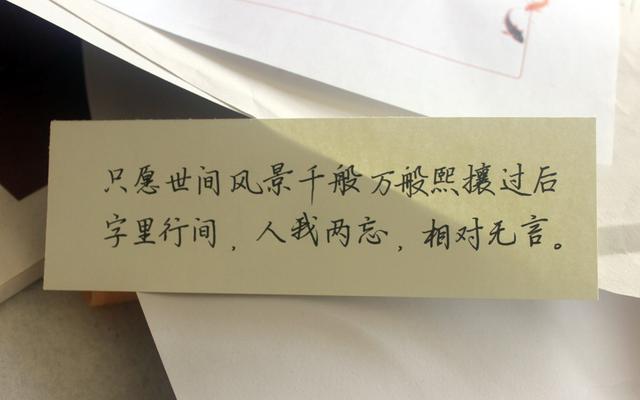 只愿世间风景千般万般熙攘过后
字里行间，人我两忘，相对无言。